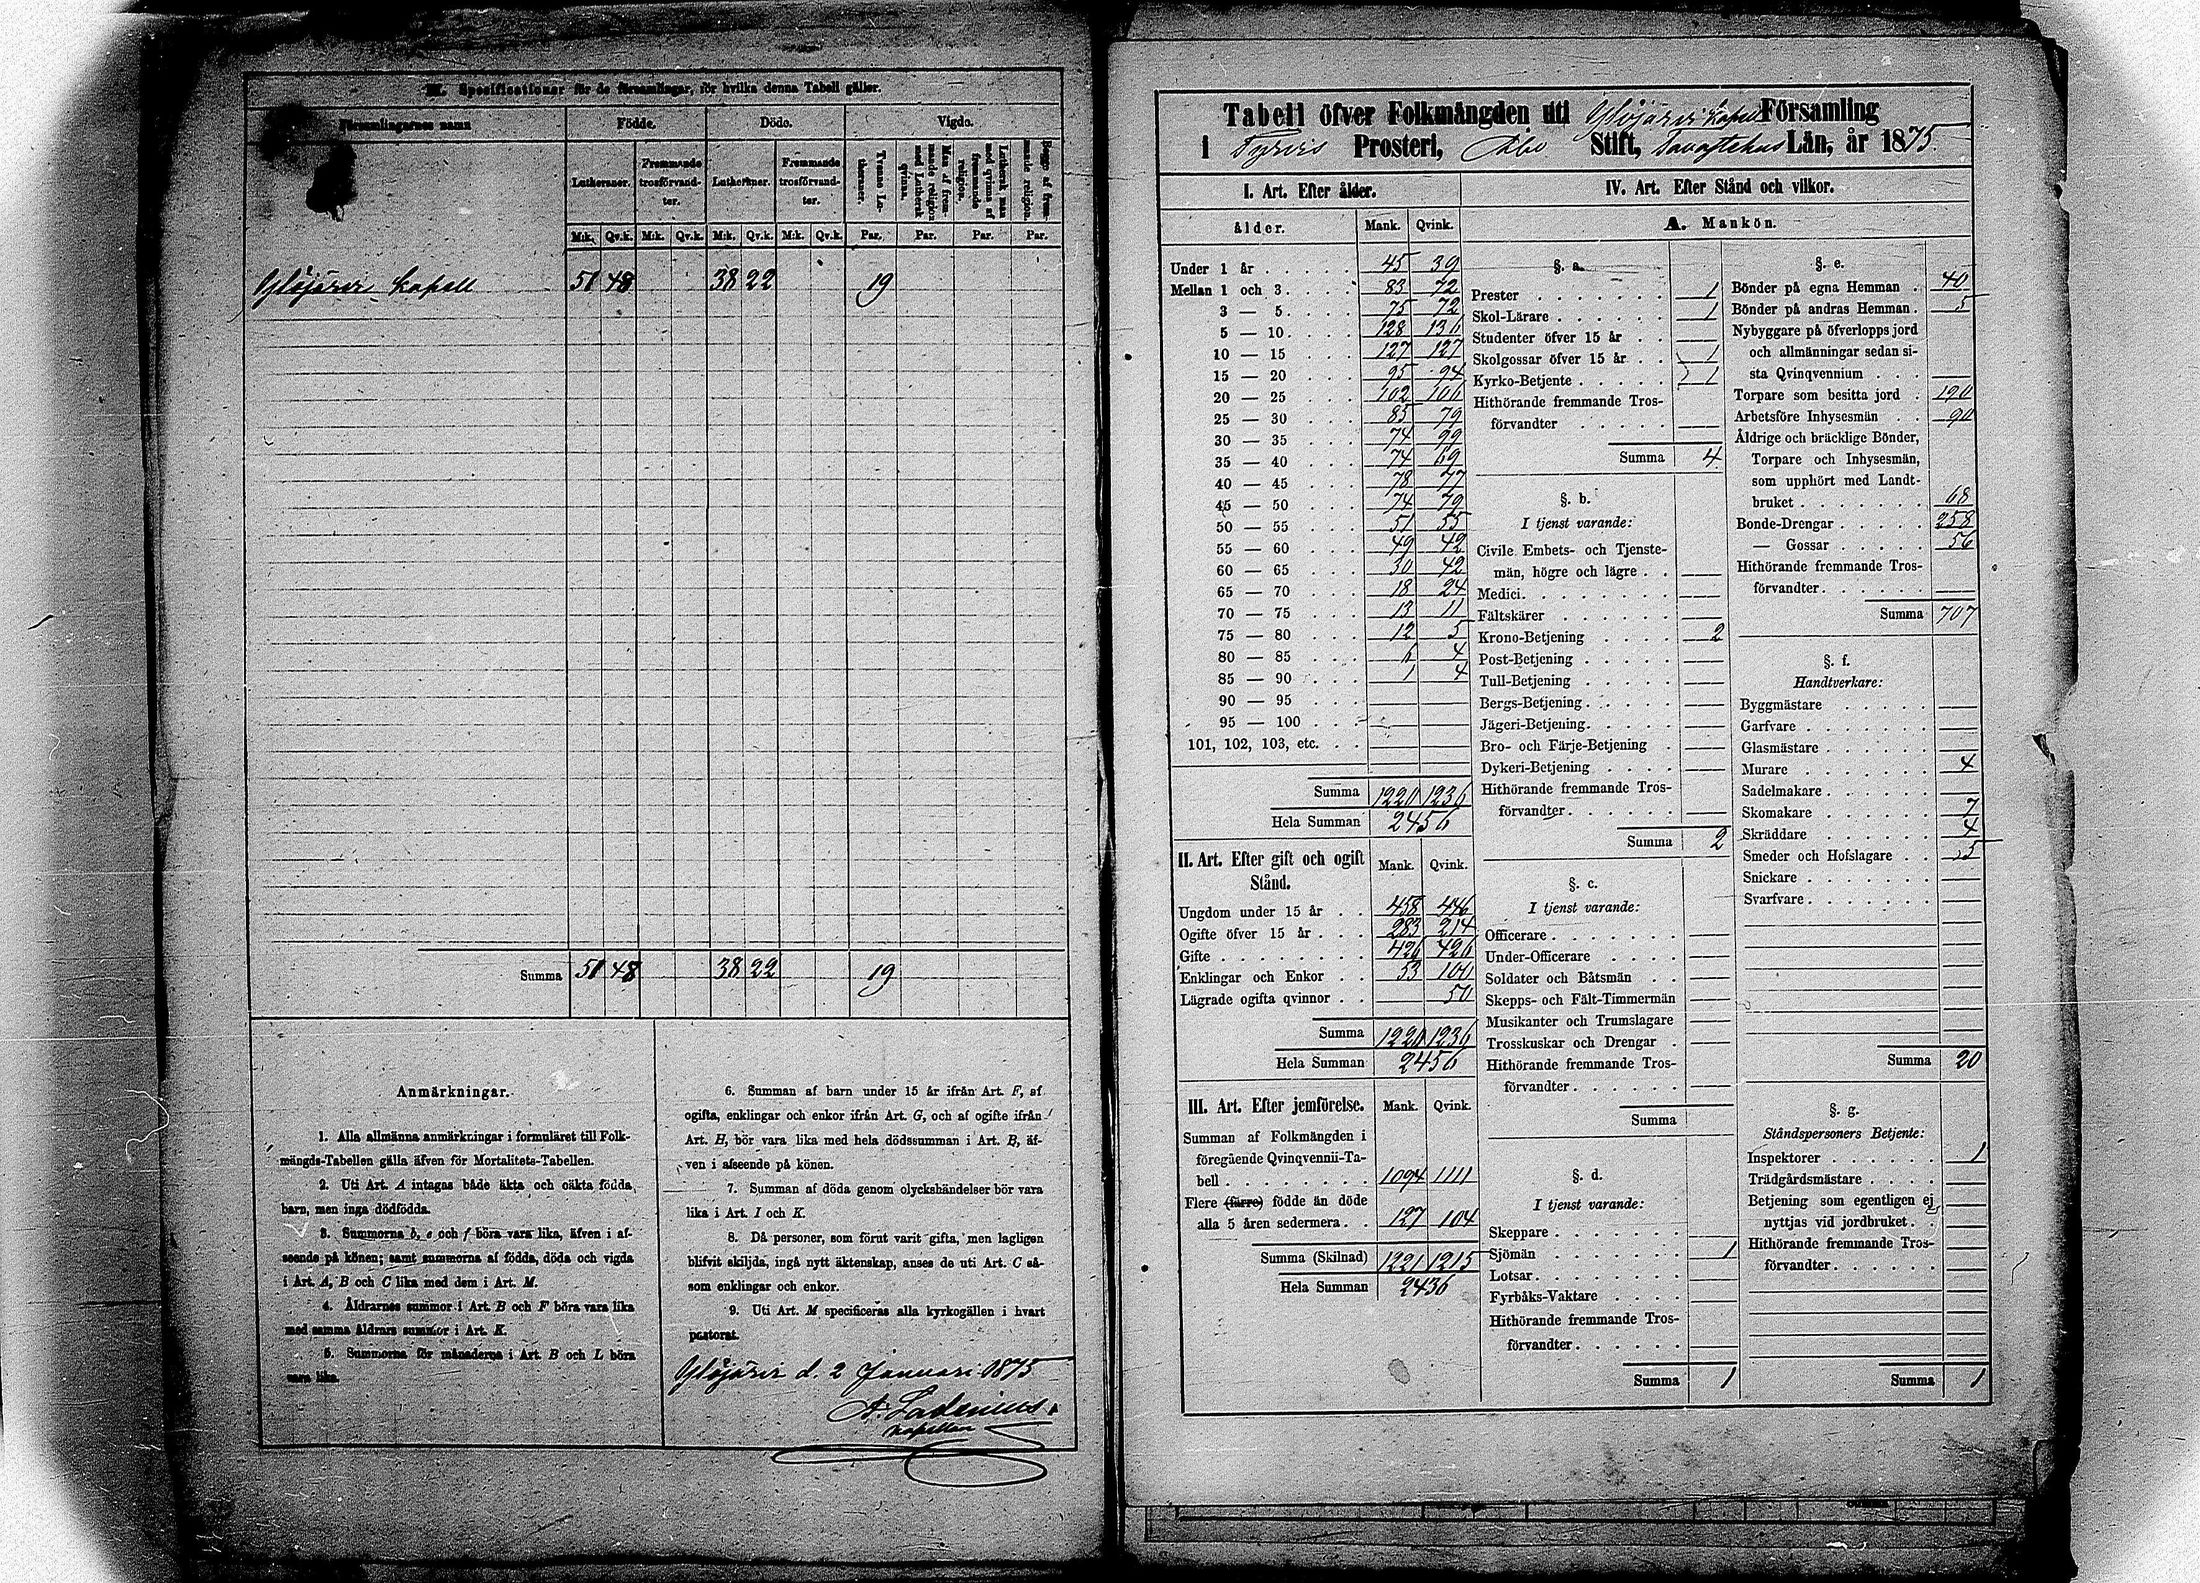 M. Specificationer för de församlingar, för hvilka denna Tabell gäller.
Församlingarnes namn Födde. Döde. Vigde.
Lutheraner. Fremmande trosförvandter. Lutheraner. Fremmande trosförvandter. Tvenne Lutheraner. Man af fremmande religion med Luthersk qvinna. Luthersk man med qvinna af fremmande religion. Begge af fremmande religion.
Mk. Qv.k. Mk. Qv.k. Mk. Qv.k. Mk. Qv.k. Par. Par. Par. Par.
Ylöjärvi kapell 51 48 38 22 19
Summa 51 48 38 22 19
Anmärkningar.
1. Alla allmänna anmärkningar i formuläret till Folk-
mängds-Tabellen gälla äfven för Mortalitets-Tabellen.
2. Uti Art. A intagas både äkta och oäkta födda
barn, men inga dödfödda.
3. Summorna b, e och f böra vara lika, äfven i af-
seende på könen; samt summorna af födda, döda och vigda
i Art. A, B och C lika med dem i Art. M.
4. Åldrarnes summor i Art. B och F böra vara lika
med samma åldrars summor i Art. K.
5. Summorna för månaderna i Art. B och L böra
vara lika.
6. Summan af barn under 15 år ifrån Art. F, af
ogifta, enklingar och enkor ifrån Art. G, och af ogifte ifrån
Art. H, bör vara lika med hela dödssumman i Art. B, äf-
ven i afseende på könen.
7. Summan af döda genom olyckshändelser bör vara
lika i Art. I och K.
8. Då personer, som förut varit gifta, men lagligen
blifvit skiljda, ingå nytt äktenskap, anses de uti Art. C så-
som enklingar och enkor.
9. Uti Art. M specificeras alla kyrkogällen i hvart
pastorat.
Ylöjärvi d. 2 Januari 1875
A. Ladenius
kapellan
Tabell öfver Folkmängden uti Ylöjärvi kapell Församling
i Tyrvis Prosteri, Åbo Stift, Tavastehus Län, år 1875.
I. Art. Efter ålder.
Ålder. Mank. Qvink.
Under 1 år 45 39
Mellan 1 och 3 83 72
3 — 5 75 72
5 — 10 128 136
10 — 15 127 127
15 — 20 95 94
20 — 25 102 106
25 — 30 85 79
30 — 35 74 99
35 — 40 74 69
40 — 45 78 77
45 — 50 74 79
50 — 55 51 55
55 — 60 49 42
60 — 65 30 42
65 — 70 18 24
70 — 75 13 11
75 — 80 12 5
80 — 85 6 4
85 — 90 1 4
90 — 95
95 — 100
101, 102, 103, etc.
Summa 1220 1236
Hela Summan 2456
II. Art. Efter gift och ogift Stånd. Mank. Qvink.
Ungdom under 15 år 458 446
Ogifte öfver 15 år 283 214
Gifte 426 426
Enklingar och Enkor 53 100
Lägrade ogifta qvinnor 50
Summa 1220 1236
Hela Summan 2456
III. Art. Efter jemförelse. Mank. Qvink.
Summan af Folkmängden i
föregående Qvinqvennii-Ta-
bell 1094 1111
Flere (färre) födde än döde
alla 5 åren sedermera 127 104
Summa (Skilnad) 1221 1215
Hela Summan 2436
IV. Art. Efter Stånd och vilkor.
A. Mankön.
§. a.
Prester 1
Skol-Lärare 1
Studenter öfver 15 år
Skolgossar öfver 15 år 1
Kyrko-Betjente 1
Hithörande fremmande Tros-
förvandter
Summa 4
§. b.
I tjenst varande:
Civile Embets- och Tjenste-
män, högre och lägre
Medici
Fältskärer
Krono-Betjening 2
Post-Betjening
Tull-Betjening
Bergs-Betjening
Jägeri-Betjening
Bro- och Färje-Betjening
Dykeri-Betjening
Hithörande fremmande Tros-
förvandter
Summa 2
§. c.
I tjenst varande:
Officerare
Under-Officerare
Soldater och Båtsmän
Skepps- och Fält-Timmermän
Musikanter och Trumslagare
Trosskuskar och Drengar
Hithörande fremmande Tros-
förvandter
Summa
§. d.
I tjenst varande:
Skeppare
Sjömän 1
Lotsar
Fyrbåks-Vaktare
Hithörande fremmande Tros-
förvandter
Summa 1
§. e.
Bönder på egna Hemman 40
Bönder på andras Hemman 5
Nybyggare på öfverlopps jord
och allmänningar sedan si-
sta Qvinqvennium
Torpare som besitta jord 190
Arbetsföre Inhysesmän 90
Åldrige och bräcklige Bönder,
Torpare och Inhysesmän,
som upphört med Landt-
bruket 68
Bonde-Drengar 258
— Gossar 56
Hithörande fremmande Tros-
förvandter
Summa 707
§. f.
Handtverkare:
Byggmästare
Garfvare
Glasmästare
Murare 4
Sadelmakare
Skomakare 7
Skräddare 4
Smeder och Hofslagare 5
Snickare
Svarfvare
Summa 20
§. g.
Ståndspersoners Betjente:
Inspektorer 1
Trädgårdsmästare
Betjening som egentligen ej
nyttjas vid jordbruket
Hithörande fremmande Tros-
förvandter
Summa 1